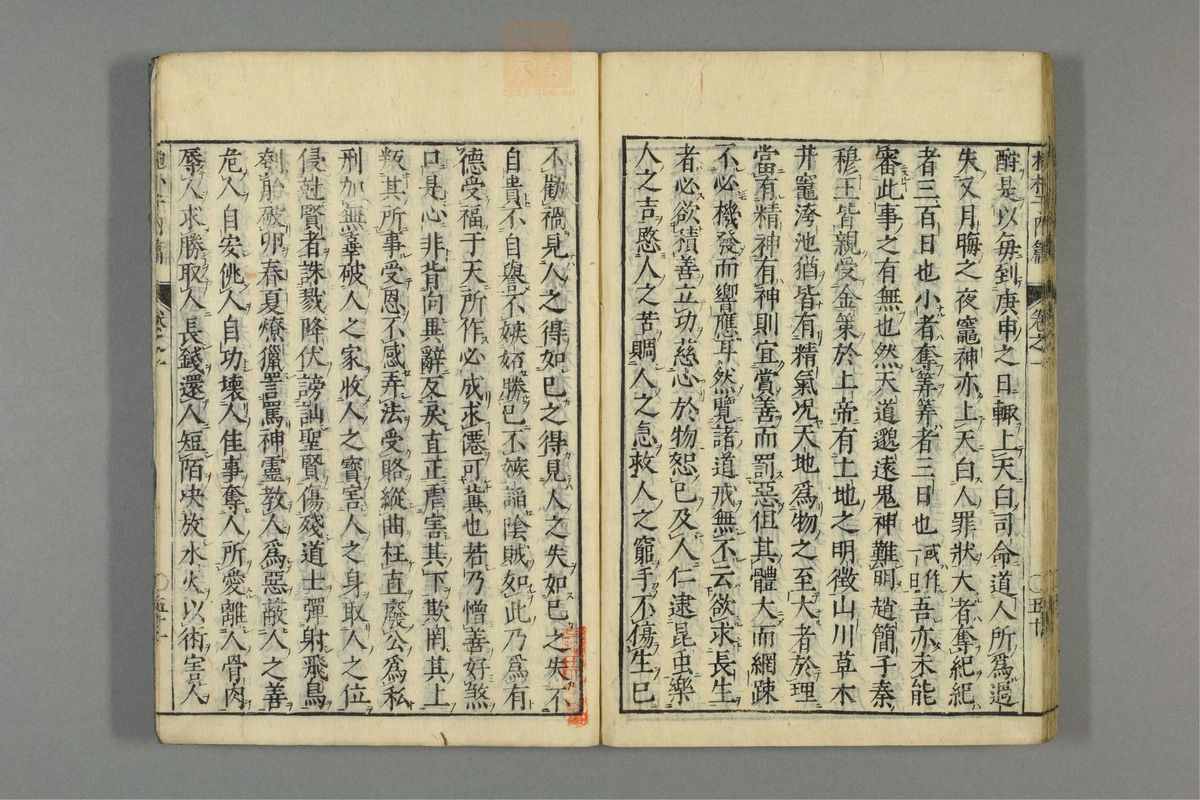 酹是以每到庚申之日輙上天白司命道人所爲過
失又月晦之夜竈神亦上天白人罪狀大者奪紀紀
者三百日也小者奪筭筭者三日也或作一日吾亦未能
審此事之有無也然天道邈遠鬼神難明趙簡子秦
穆王皆親受金策於上帝有土地之明徵山川草木
井竈洿池猶皆有精氣况天地爲物之至大者於理
當有精神有神則宜賞善而罰惡但其體大而網踈
不必機發而響應耳然覽諸道戒無不云欲求長生
者必欲積善立功慈心於物恕己及人仁逮昆虫樂
人之吉愍人之苦賙人之急救人之窮手不傷生已
不勸禍見人之得如己之得見人之失如己之失不
自貴不自譽不嫉妬勝己不嫉謟陰賊如此乃爲有
德受福于天所作必成求僊可兾也若乃憎善好煞
口是心非背向異辭反戾直正虐害其下欺罔其上
叛其所事受恩不感弄法受賂縱曲枉直廢公爲私
刑加無辜破人之家收人之寳害人之身取人之位
侵尅賢者誅戮降伏謗訕聖賢傷殘道士彈射飛鳥
刳胎破卵春夏燎獵詈罵神靈教人爲惡蔽人之善
危人自安佻人自功壊人佳事奪人所愛離人骨肉
辱人求勝取人長錢還人短陌决放水火以術害人